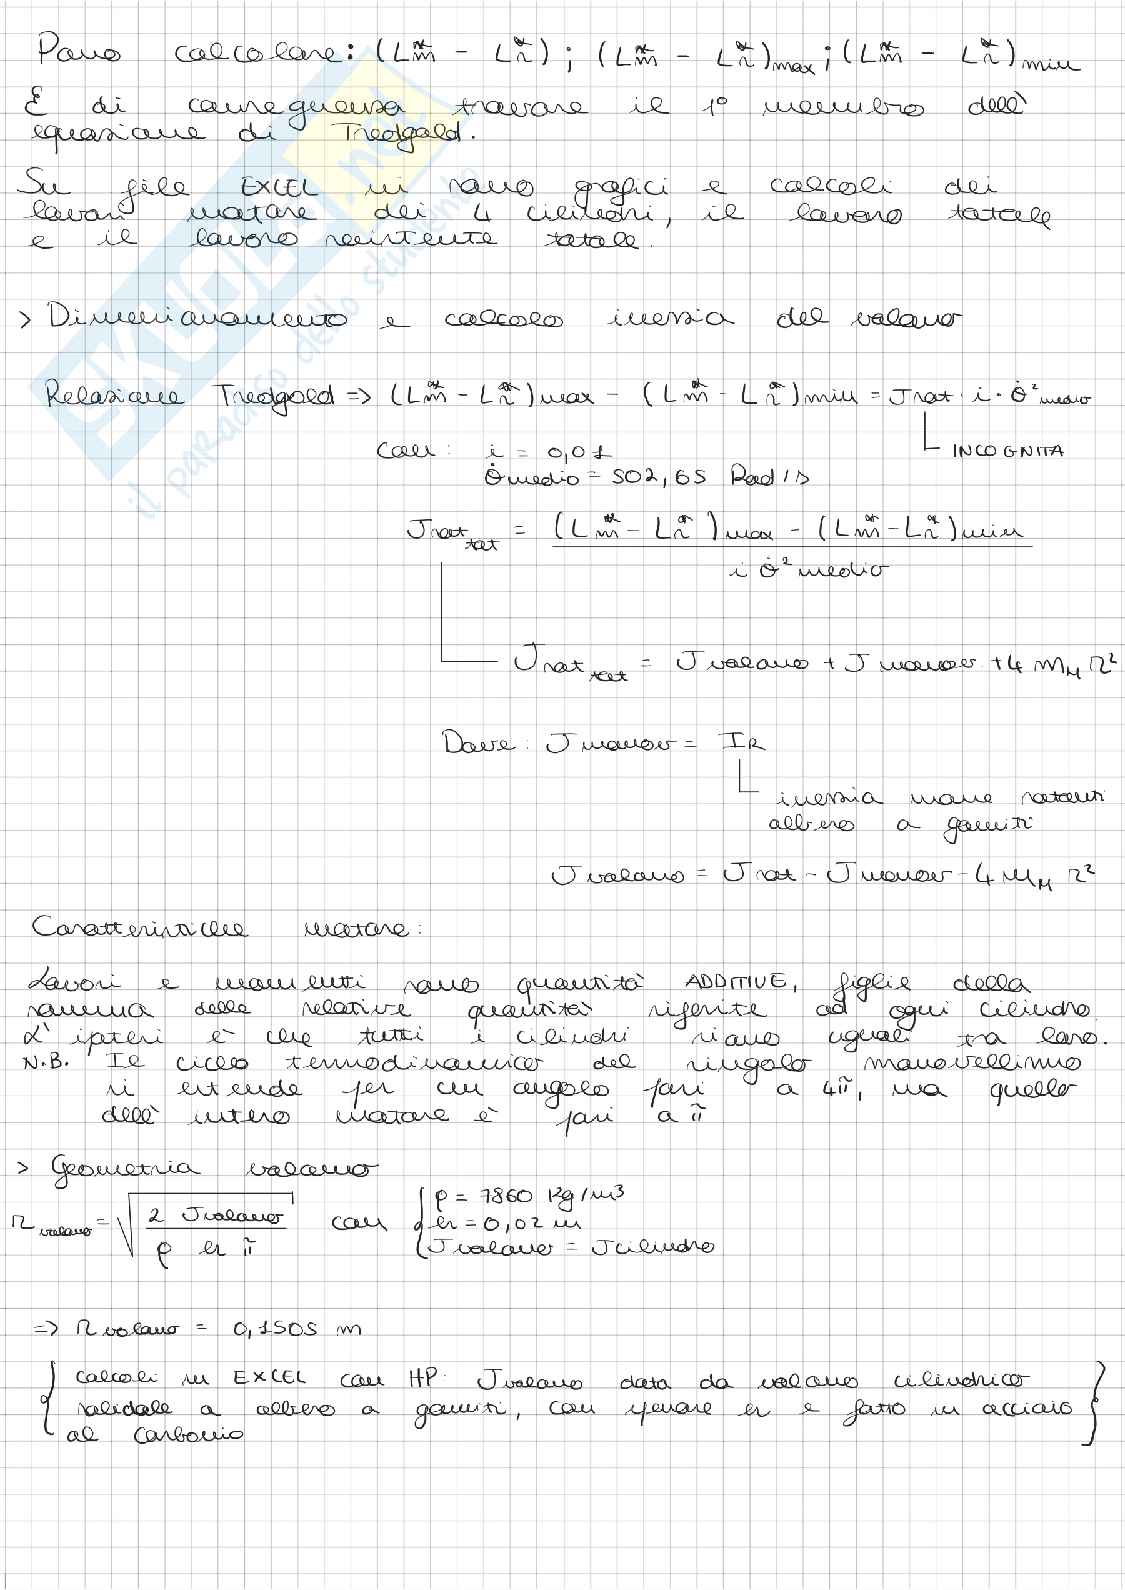 Posso calcolare: (Lm* - Lr*) ; (Lm* - Lr*)max ; (Lm* - Lr*)min
E di conseguenza trovare il 1° membro dell'
equazione di Tredgold.
Su file EXCEL vi sono grafici e calcoli dei
lavori motore dei 4 cilindri, il lavoro totale
e il lavoro resistente totale.
> Dimensionamento e calcolo inerzia del volano
Relazione Tredgold => (Lm* - Lr*)max - (Lm* - Lr*)min = Jrot · i · θ̇² medio
INCOGNITA
con: i = 0,01
θ̇medio = 502,65 Rad/s
Jrot tot = (Lm* - Lr*)max - (Lm* - Lr*)min
i θ̇² medio
Jrot tot = Jvolano + Jmanov + 4 mM r²
Dove: Jmanov = IR
inerzia masse rotanti
albero a gomiti
Jvolano = Jrot - Jmanov - 4 mM r²
Caratteristiche motore:
Lavori e momenti sono quantità ADDITIVE, figlie della
somma delle relative quantità riferite ad ogni cilindro.
L'ipotesi è che tutti i cilindri siano uguali tra loro.
N.B. Il ciclo termodinamico del singolo manovellismo
si estende per un angolo pari a 4π, ma quello
dell'intero motore è pari a π
> Geometria volano
r volano = √ 2 Jvolano / ρ es π con { ρ = 7860 Kg/m³
es = 0,02 m
Jvolano = Jcilindro
=> r volano = 0,1505 m
{ calcoli in EXCEL con HP: Jvolano data da volano cilindrico
solidale a albero a gomiti, con spessore es e fatto in acciaio
al carbonio }
SKUOLA.net
il paradiso dello studente